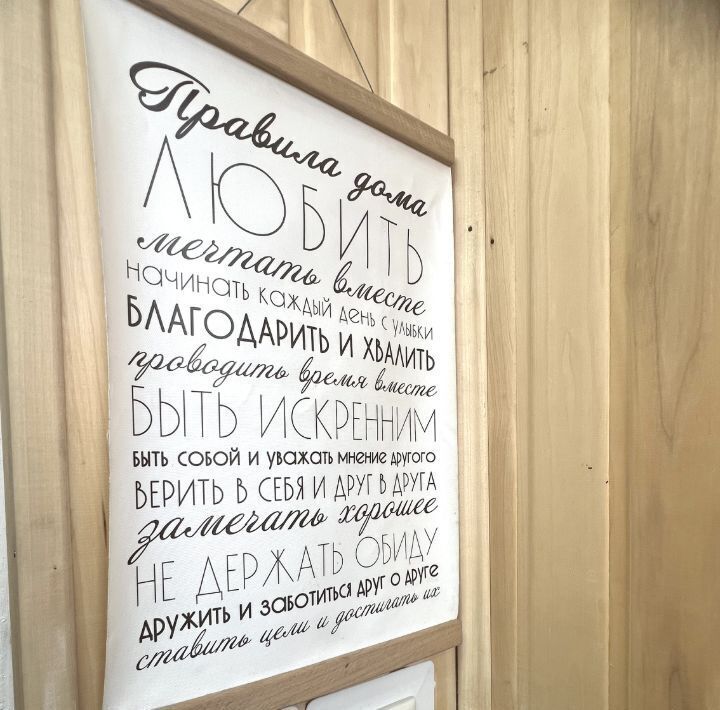 Правила дома
ЛЮБИТЬ
мечтать вместе
начинать каждый день с улыбки
БЛАГОДАРИТЬ И ХВАЛИТЬ
проводить время вместе
БЫТЬ ИСКРЕННИМ
БЫТЬ СОБОЙ И УВАЖАТЬ МНЕНИЕ ДРУГОГО
ВЕРИТЬ В СЕБЯ И ДРУГ В ДРУГА
замечать хорошее
НЕ ДЕРЖАТЬ ОБИДУ
ДРУЖИТЬ И ЗАБОТИТЬСЯ ДРУГ О ДРУГЕ
ставить цели и достигать их